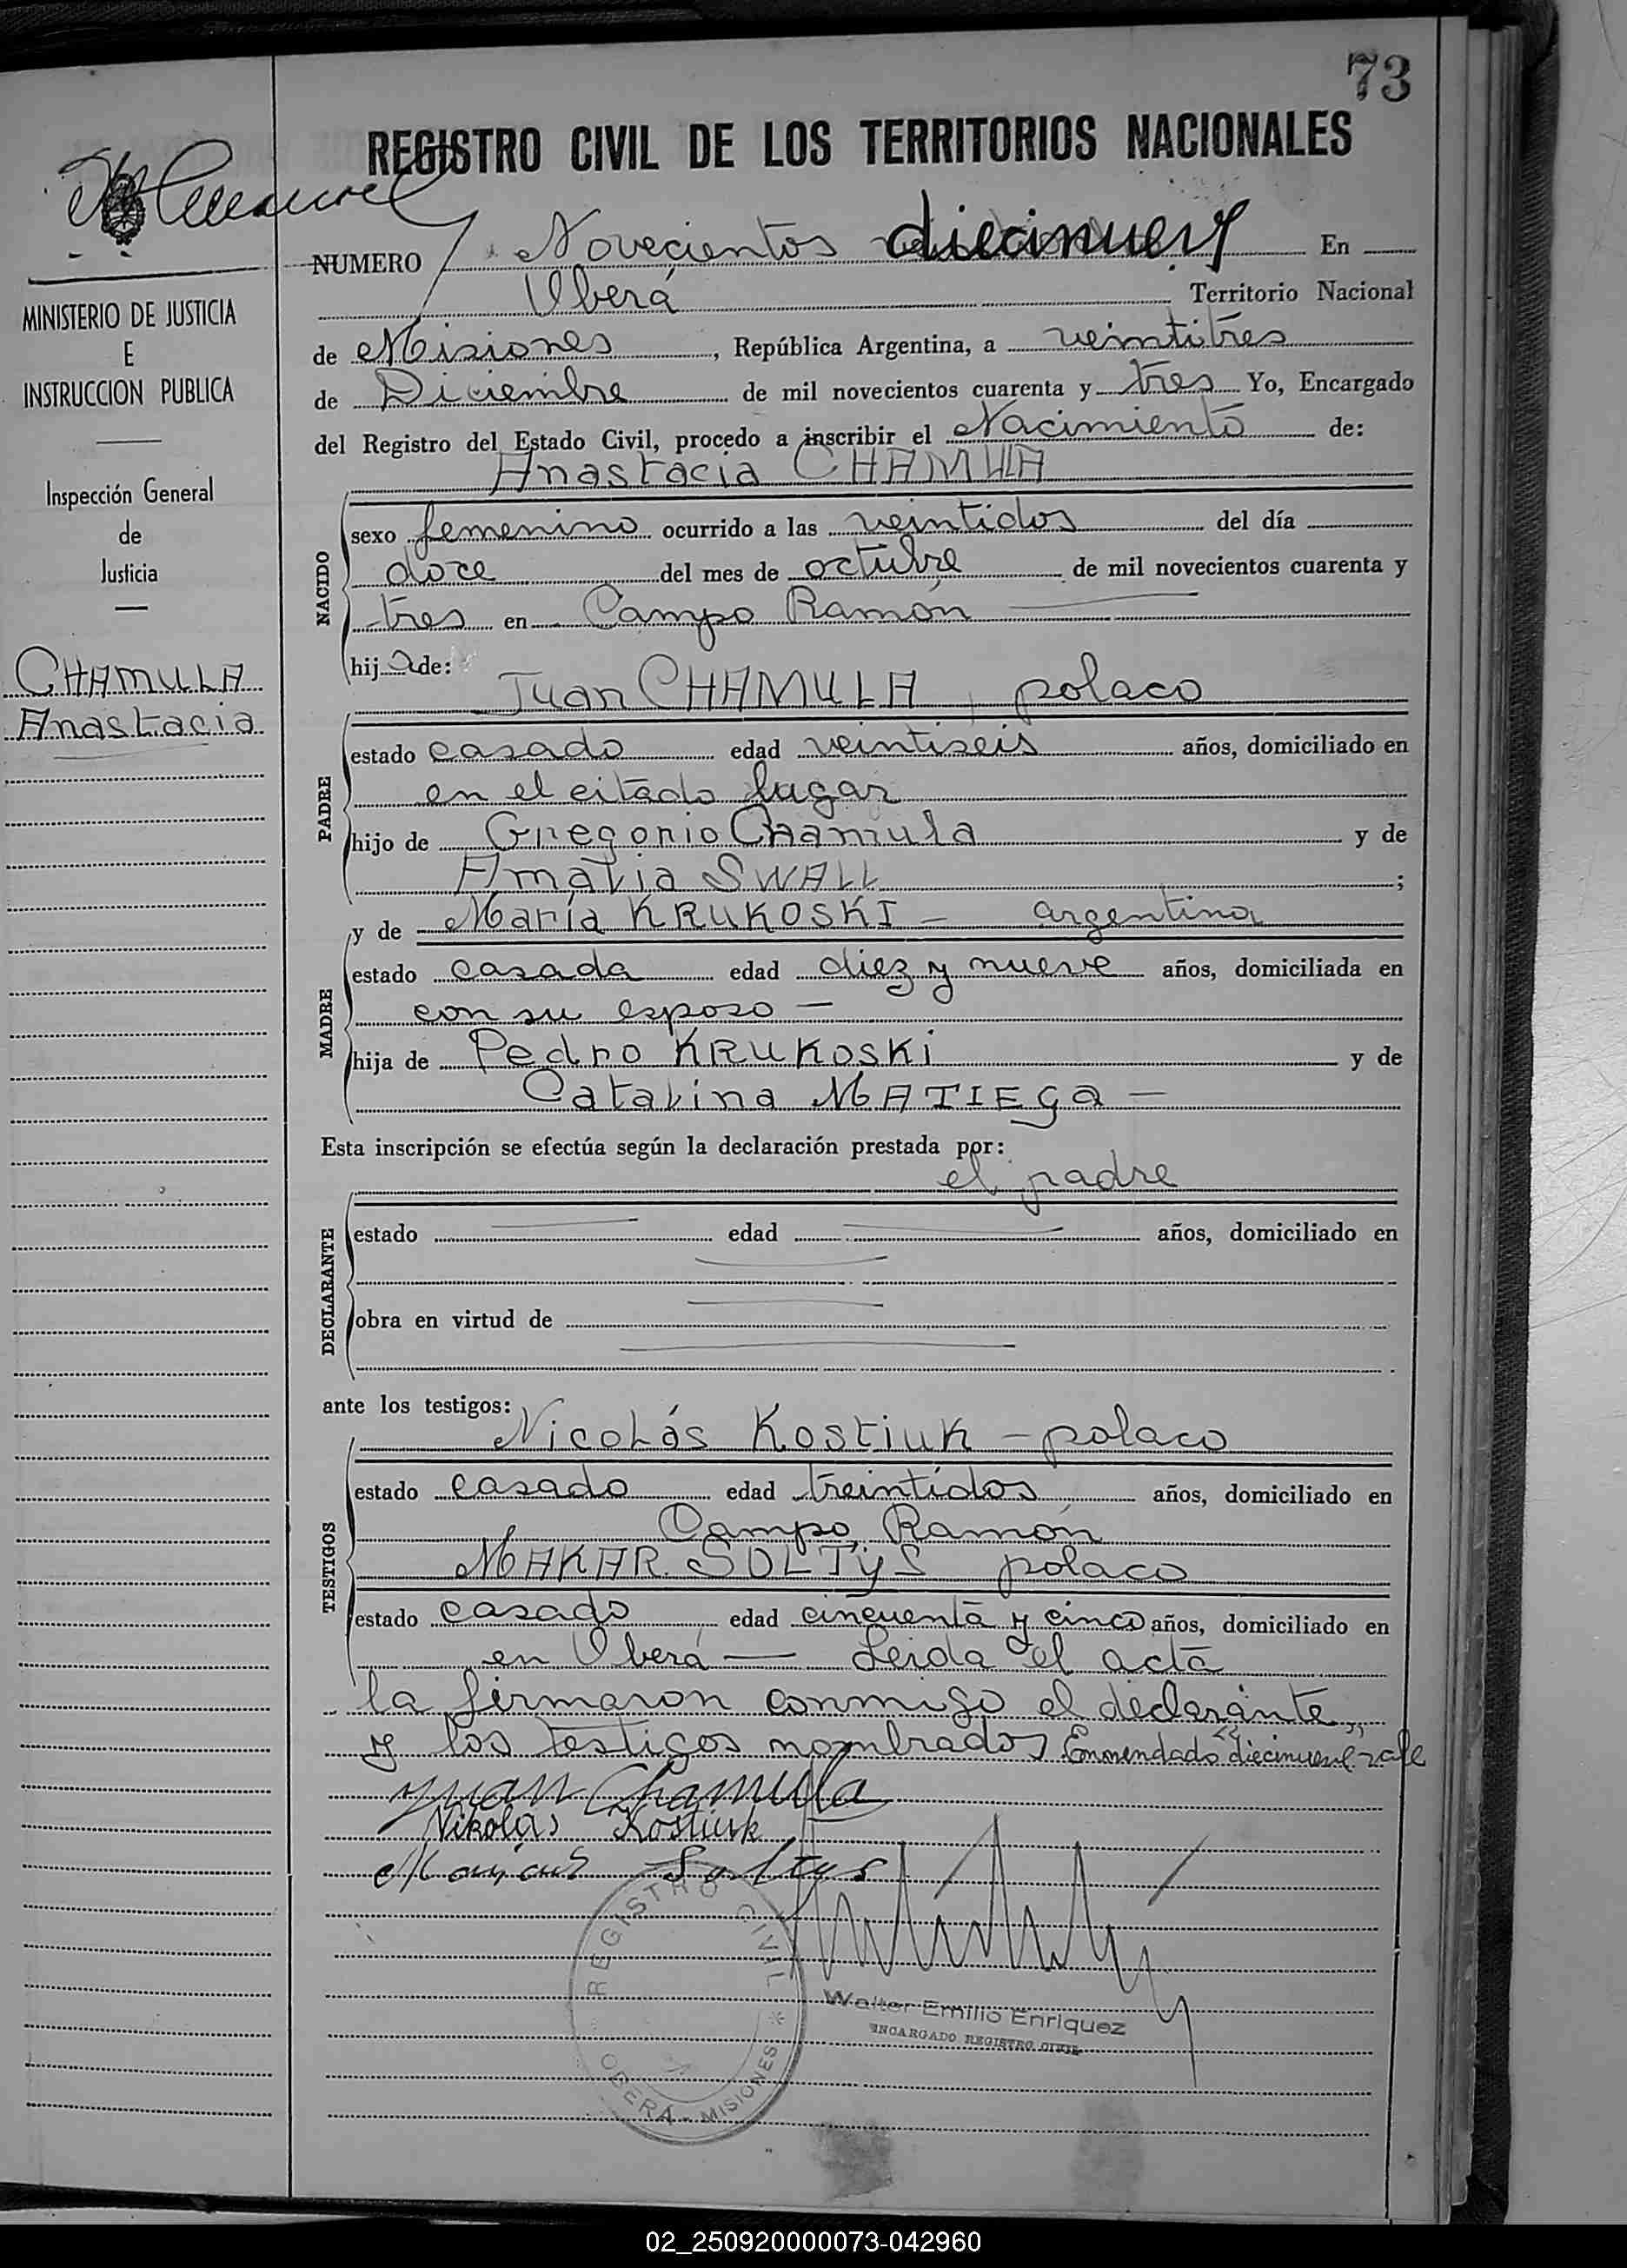 73
REGISTRO CIVIL DE LOS TERRITORIOS NACIONALES
NUMERO Novecientos diecinueve En
Oberá Territorio Nacional
de Misiones, República Argentina, a veintitres
de Diciembre de mil novecientos cuarenta y tres Yo, Encargado
del Registro del Estado Civil, procedo a inscribir el Nacimiento de:
Anastacia CHAMULA
NACIDO
sexo femenino ocurrido a las veintidos del día
doce del mes de octubre de mil novecientos cuarenta y
tres en Campo Ramón
hija de:
Juan CHAMULA, polaco
PADRE
estado casado edad veintiseis años, domiciliado en
en el citado lugar
hijo de Gregorio Chamula y de
Amalia SWALL ;
y de María KRUKOSKI - argentina
MADRE
estado casada edad diez y nueve años, domiciliada en
con su esposo -
hija de Pedro KRUKOSKi y de
Catalina MATIEGA -
Esta inscripción se efectúa según la declaración prestada por:
el padre
DECLARANTE
estado edad años, domiciliado en
obra en virtud de
ante los testigos:
Nicolás Kostiuk - polaco
TESTIGOS
estado casado edad treintidos años, domiciliado en
Campo Ramón
MAKAR SOLTYS polaco
estado casado edad cincuenta y cinco años, domiciliado en
en Oberá — Leida el acta
la firmaron conmigo el declarante,
y los testigos nombrados Enmendado "diecinueve" vale
Juan Chamula
Nikolas Kostiuk
Soltys
REGISTRO CIVIL
OBERÁ - MISIONES
Walter Emilio Enriquez
ENCARGADO REGISTRO CIVIL
MINISTERIO DE JUSTICIA
E
INSTRUCCION PUBLICA
Inspección General
de
Justicia
CHAMULA
Anastacia
02_250920000073-042960